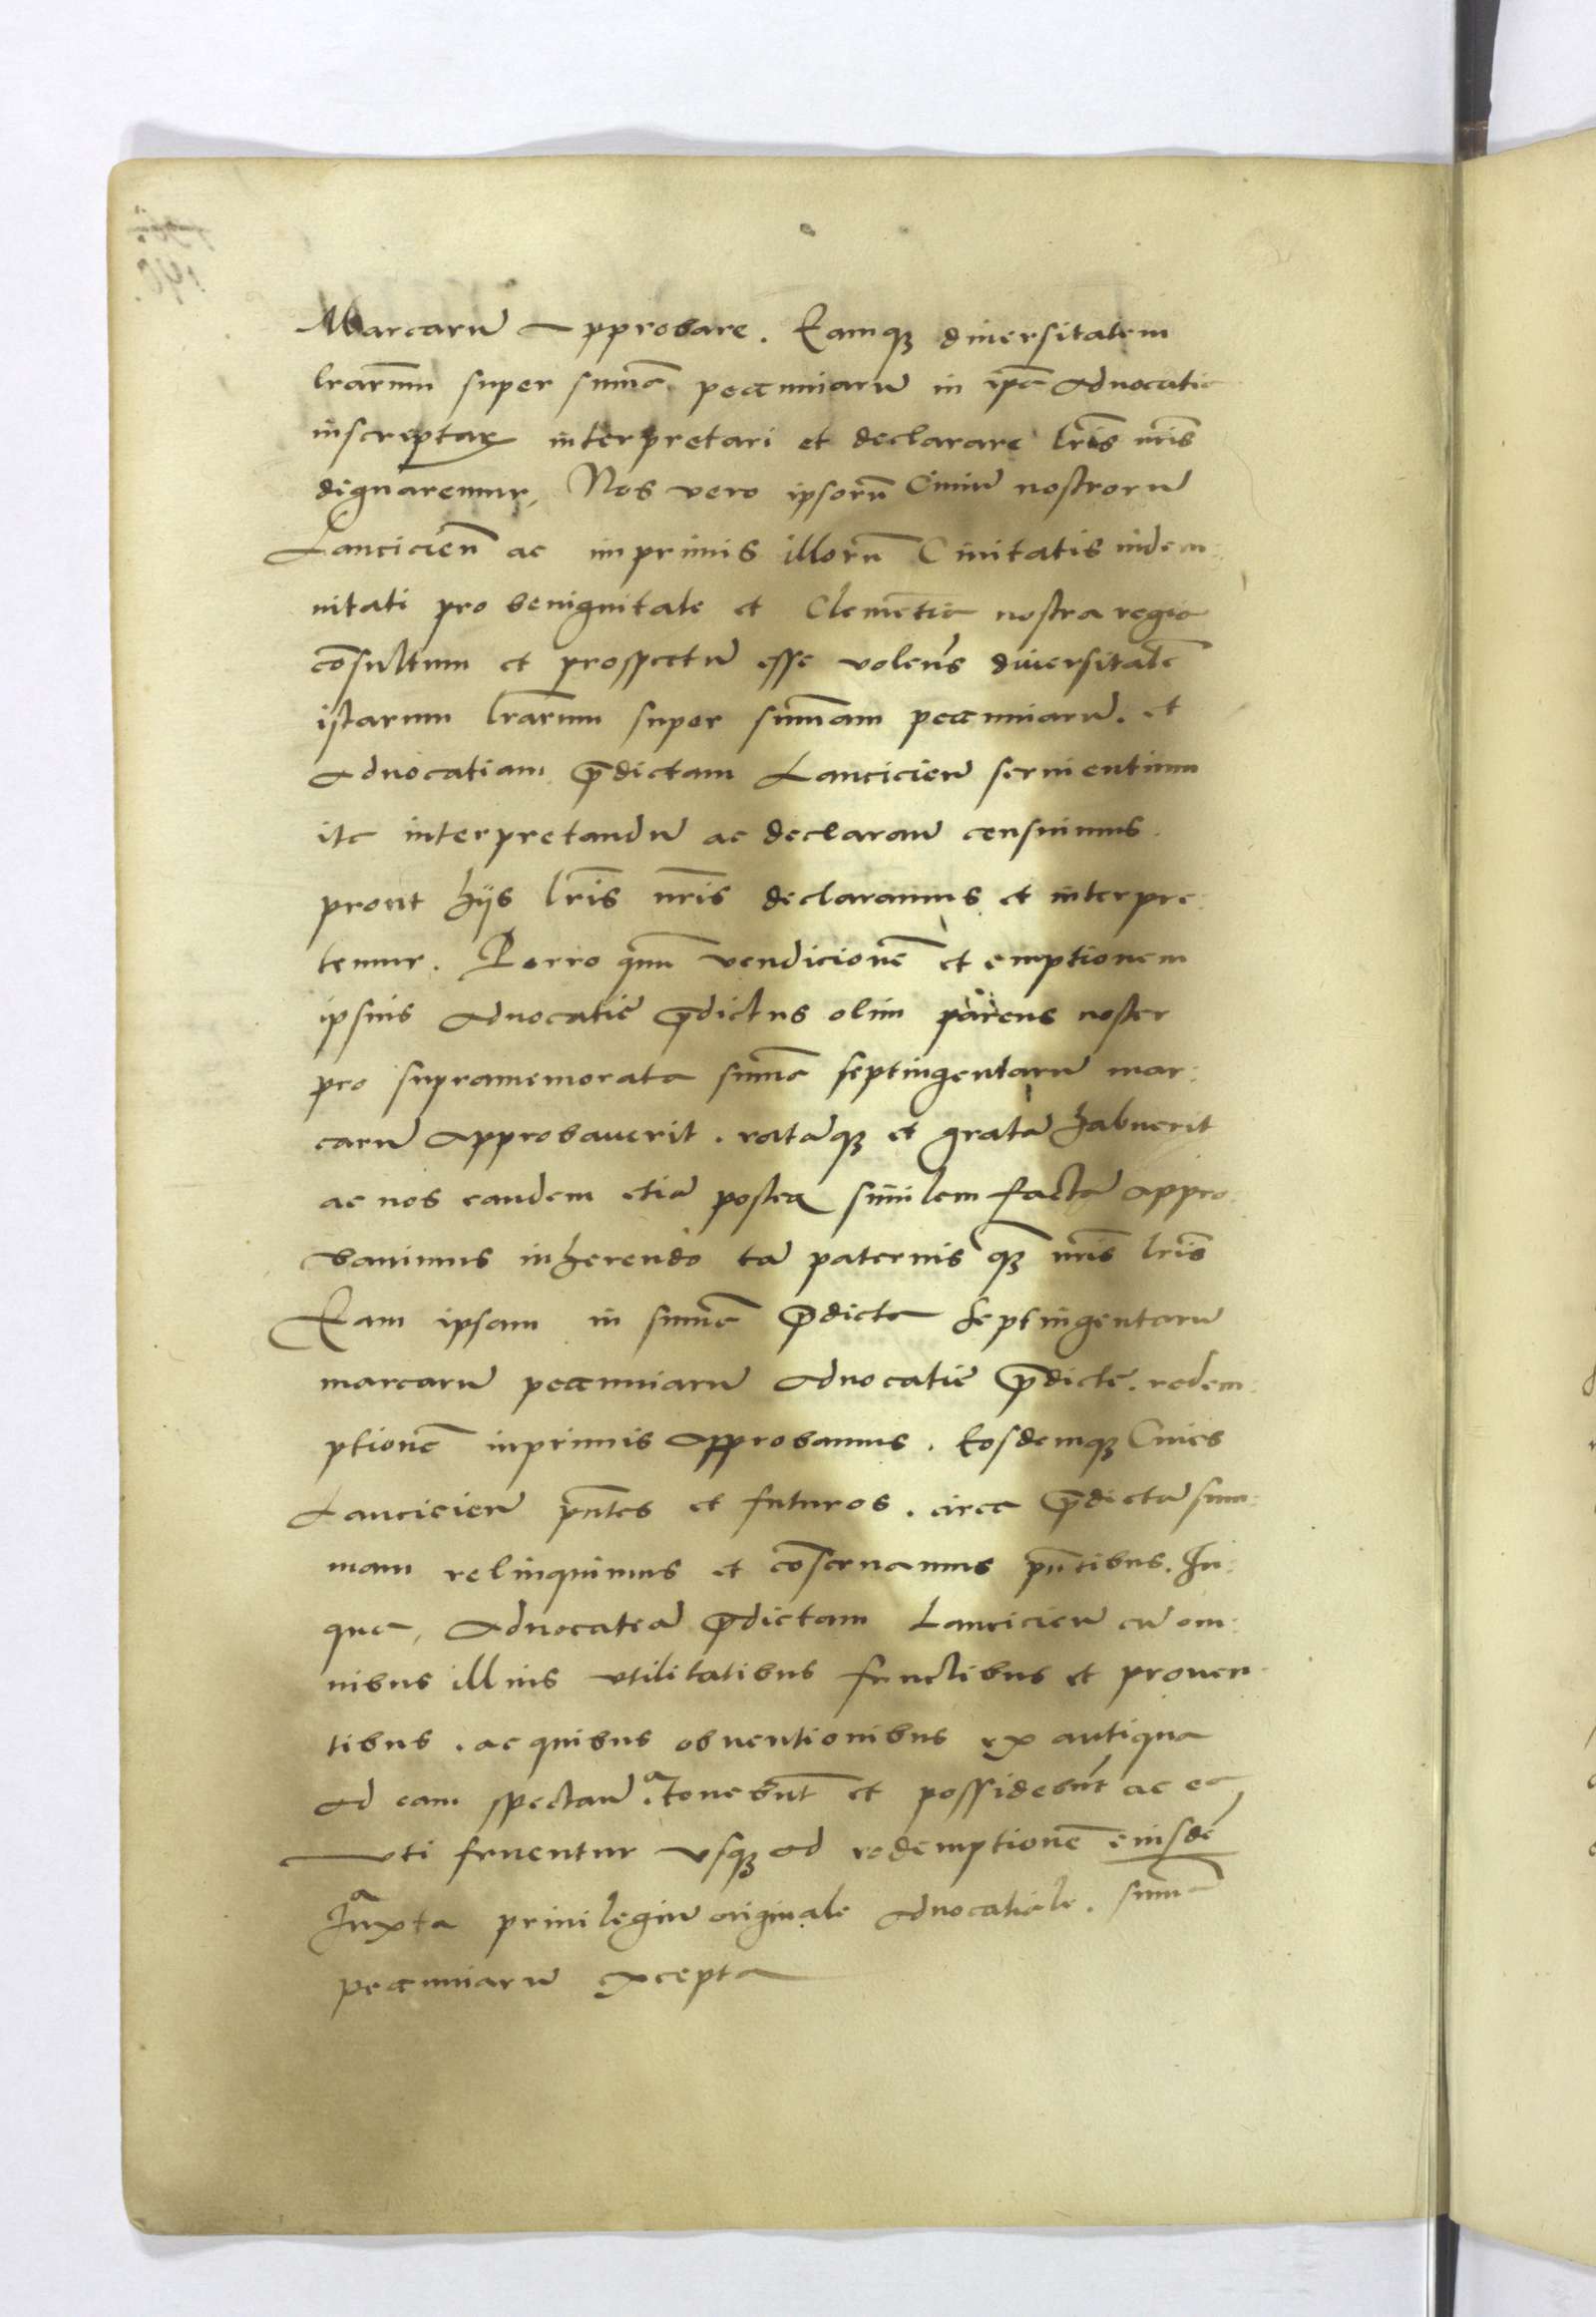 Marcarū approbare. Eamq₃ diuersitatem
lrarum super sum̄a pecuniarū in ip̄a aduocatia
inscreptaꝝ interpretari et declarare lr̄is nr̄is
dignaremur, Nos vero ipsorū Ciuiū nostrorū
Lanciciēn ac imprimis illorū Ciuitatis indem:
nitati pro benignitate et Clemētia nostra regia
cōsultum et prospectū esse volen̄s diuersitatē
istarum lrarum super summam pecuniarū. et
aduocatiam p̄dictam Lanciciēn seruientium
ita interpretandū ac declarand̄ censuimus.
prout hijs lr̄is nr̄is declaramus et interpre:
temur. Porro quū vendicionē et emptionem
ipsius aduocatie p̄dictus olim parens noster
pro supramemorata sum̄a septingentarū mar:
carū approbauerit. ratāq₃ et gratā habuerit
ac nos eandem etiā postea similem factā appro:
bauimus inherendo tā paternis q̄₃ nr̄is lr̄is
Eam ipsam in sum̄a p̄dicta septingentarū
marcarū pecuniarū aduocatie p̄dicte. redem:
ptionē inprimis approbamus. Eosdemq₃ Ciues
Lanciciēn pn̄tes et futuros. circa p̄dictā sum:
mam relinquimus et cōseruamus pn̄tibus. In
qua, aduocatiā p̄dictam Lanciciēn cū om:
nibus illius vtilitatibus fructibus et prouen:
tibus. ac quibus obuentionibus ex antiqua
ad eam spectan̄ .a tenebūt et possidebūt ac ea
vti fruentur vsq₃ ad redemptionē eiusdē
a Juxta priuilegiū originale aduocatiale. sum̄a
pecuniarū excepta